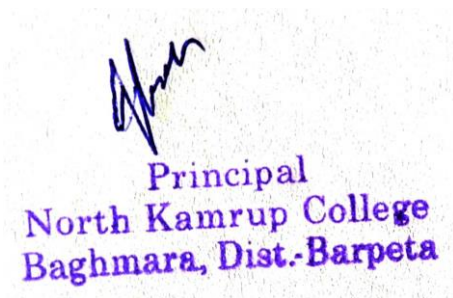 Principal
North Kamrup College
Baghmara, Dist.-Barpeta